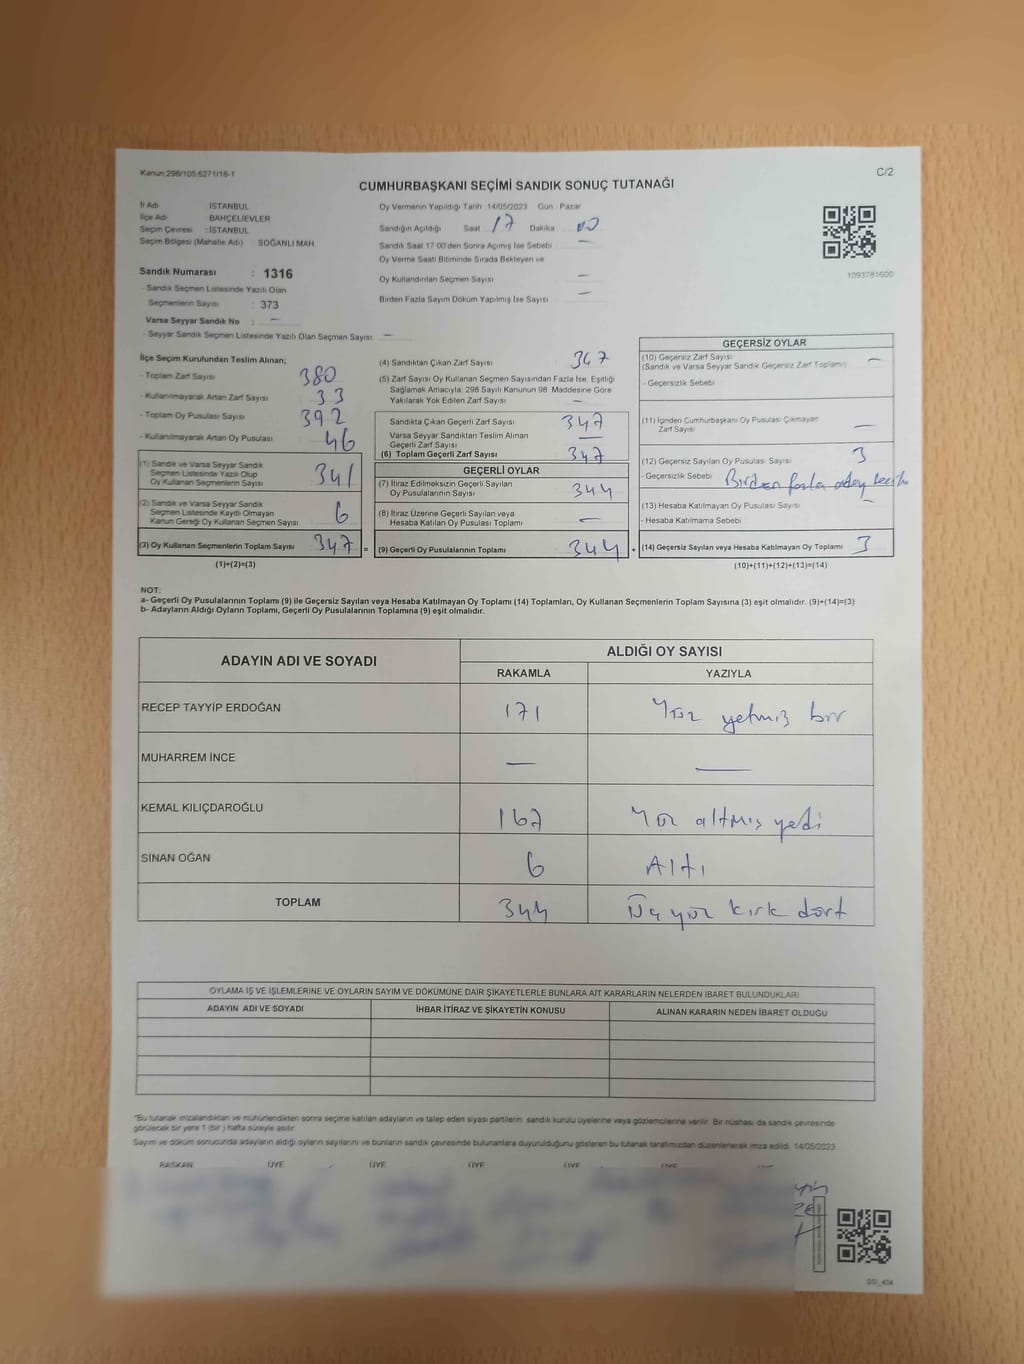 Kanun:298/105,6271/18-1
C/2
CUMHURBAŞKANI SEÇİMİ SANDIK SONUÇ TUTANAĞI
İl Adı İSTANBUL
İlçe Adı BAHÇELİEVLER
Seçim Çevresi : İSTANBUL
Seçim Bölgesi (Mahalle Adı) SOĞANLI MAH
Sandık Numarası : 1316
- Sandık Seçmen Listesinde Yazılı Olan
Seçmenlerin Sayısı : 373
Varsa Seyyar Sandık No : —
- Seyyar Sandık Seçmen Listesinde Yazılı Olan Seçmen Sayısı: —
Oy Vermenin Yapıldığı Tarih 14/05/2023 Gün Pazar
Sandığın Açıldığı Saat 17 Dakika 00
Sandık Saat 17:00'den Sonra Açılmış İse Sebebi —
Oy Verme Saati Bitiminde Sırada Bekleyen ve
Oy Kullandırılan Seçmen Sayısı —
Birden Fazla Sayım Döküm Yapılmış İse Sayısı —
1093781600
İlçe Seçim Kurulundan Teslim Alınan;
- Toplam Zarf Sayısı 380
- Kullanılmayarak Artan Zarf Sayısı 33
- Toplam Oy Pusulası Sayısı 392
- Kullanılmayarak Artan Oy Pusulası 46
(1) Sandık ve Varsa Seyyar Sandık
Seçmen Listesinde Yazılı Olup
Oy Kullanan Seçmenlerin Sayısı 341
(2) Sandık ve Varsa Seyyar Sandık
Seçmen Listesinde Kayıtlı Olmayan
Kanun Gereği Oy Kullanan Seçmen Sayısı 6
(3) Oy Kullanan Seçmenlerin Toplam Sayısı 347 =
(1)+(2)=(3)
(4) Sandıktan Çıkan Zarf Sayısı 347
(5) Zarf Sayısı Oy Kullanan Seçmen Sayısından Fazla İse, Eşitliği
Sağlamak Amacıyla, 298 Sayılı Kanunun 98. Maddesine Göre
Yakılarak Yok Edilen Zarf Sayısı —
Sandıkta Çıkan Geçerli Zarf Sayısı 347
Varsa Seyyar Sandıktan Teslim Alınan
Geçerli Zarf Sayısı —
(6) Toplam Geçerli Zarf Sayısı 347
GEÇERLİ OYLAR
(7) İtiraz Edilmeksizin Geçerli Sayılan
Oy Pusulalarının Sayısı 344
(8) İtiraz Üzerine Geçerli Sayılan veya
Hesaba Katılan Oy Pusulası Toplamı —
(9) Geçerli Oy Pusulalarının Toplamı 344 +
GEÇERSİZ OYLAR
(10) Geçersiz Zarf Sayısı —
(Sandık ve Varsa Seyyar Sandık Geçersiz Zarf Toplamı)
- Geçersizlik Sebebi
(11) İçinden Cumhurbaşkanı Oy Pusulası Çıkmayan
Zarf Sayısı —
(12) Geçersiz Sayılan Oy Pusulası Sayısı 3
- Geçersizlik Sebebi Birden fazla aday
(13) Hesaba Katılmayan Oy Pusulası Sayısı —
- Hesaba Katılmama Sebebi
(14) Geçersiz Sayılan veya Hesaba Katılmayan Oy Toplamı 3
(10)+(11)+(12)+(13)=(14)
NOT:
a- Geçerli Oy Pusulalarının Toplamı (9) ile Geçersiz Sayılan veya Hesaba Katılmayan Oy Toplamı (14) Toplamları, Oy Kullanan Seçmenlerin Toplam Sayısına (3) eşit olmalıdır. (9)+(14)=(3)
b- Adayların Aldığı Oyların Toplamı, Geçerli Oy Pusulalarının Toplamına (9) eşit olmalıdır.
ADAYIN ADI VE SOYADI
ALDIĞI OY SAYISI
RAKAMLA YAZIYLA
RECEP TAYYİP ERDOĞAN 171 Yüz yetmiş bir
MUHARREM İNCE — —
KEMAL KILIÇDAROĞLU 167 Yüz altmış yedi
SİNAN OĞAN 6 Altı
TOPLAM 344 Üç yüz kırk dört
OYLAMA İŞ VE İŞLEMLERİNE VE OYLARIN SAYIM VE DÖKÜMÜNE DAİR ŞİKAYETLERLE BUNLARA AİT KARARLARIN NELERDEN İBARET BULUNDUKLARI
ADAYIN ADI VE SOYADI İHBAR İTİRAZ VE ŞİKAYETİN KONUSU ALINAN KARARIN NEDEN İBARET OLDUĞU
*Bu tutanak imzalandıktan ve mühürlendikten sonra seçime katılan adayların ve talep eden siyasi partilerin sandık kurulu üyelerine veya gözlemcilerine verilir. Bir nüshası da sandık çevresinde
görülecek bir yere 1 (bir) hafta süreyle asılır.
Sayım ve döküm sonucunda adayların aldığı oyların sayılarını ve bunların sandık çevresinde bulunanlara duyurulduğunu gösteren bu tutanak tarafımızdan düzenlenerek imza edildi. 14/05/2023
BAŞKAN ÜYE ÜYE ÜYE ÜYE ÜYE